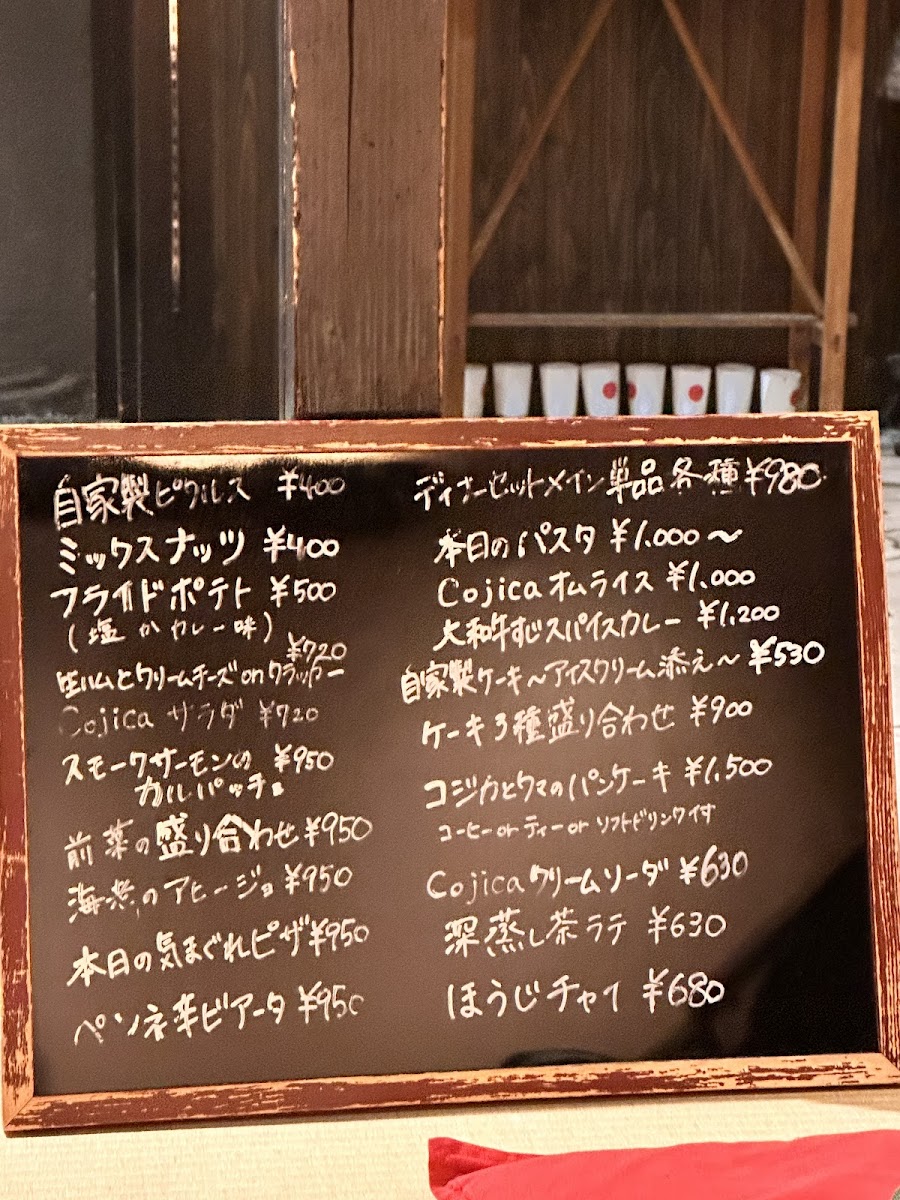 自家製ピクルス ¥400
ミックスナッツ ¥400
フライドポテト ¥500
(塩かカレー味)
¥720
生ハムとクリームチーズonクラッカー
Cojica サラダ ¥720
スモークサーモンの ¥950
カルパッチョ
前菜の盛り合わせ ¥950
海老のアヒージョ ¥950
本日の気まぐれピザ ¥950
ペンネ辛ビアータ ¥950
ディナーセットメイン単品各種 ¥980
本日のパスタ ¥1.000〜
Cojica オムライス ¥1.000
大和牛すじスパイスカレー ¥1.200
自家製ケーキ〜アイスクリーム添え〜 ¥530
ケーキ3種盛り合わせ ¥900
コジカとクマのパンケーキ ¥1.500
コーヒーorティーorソフトドリンク付
Cojica クリームソーダ ¥630
深蒸し茶ラテ ¥630
ほうじチャイ ¥680